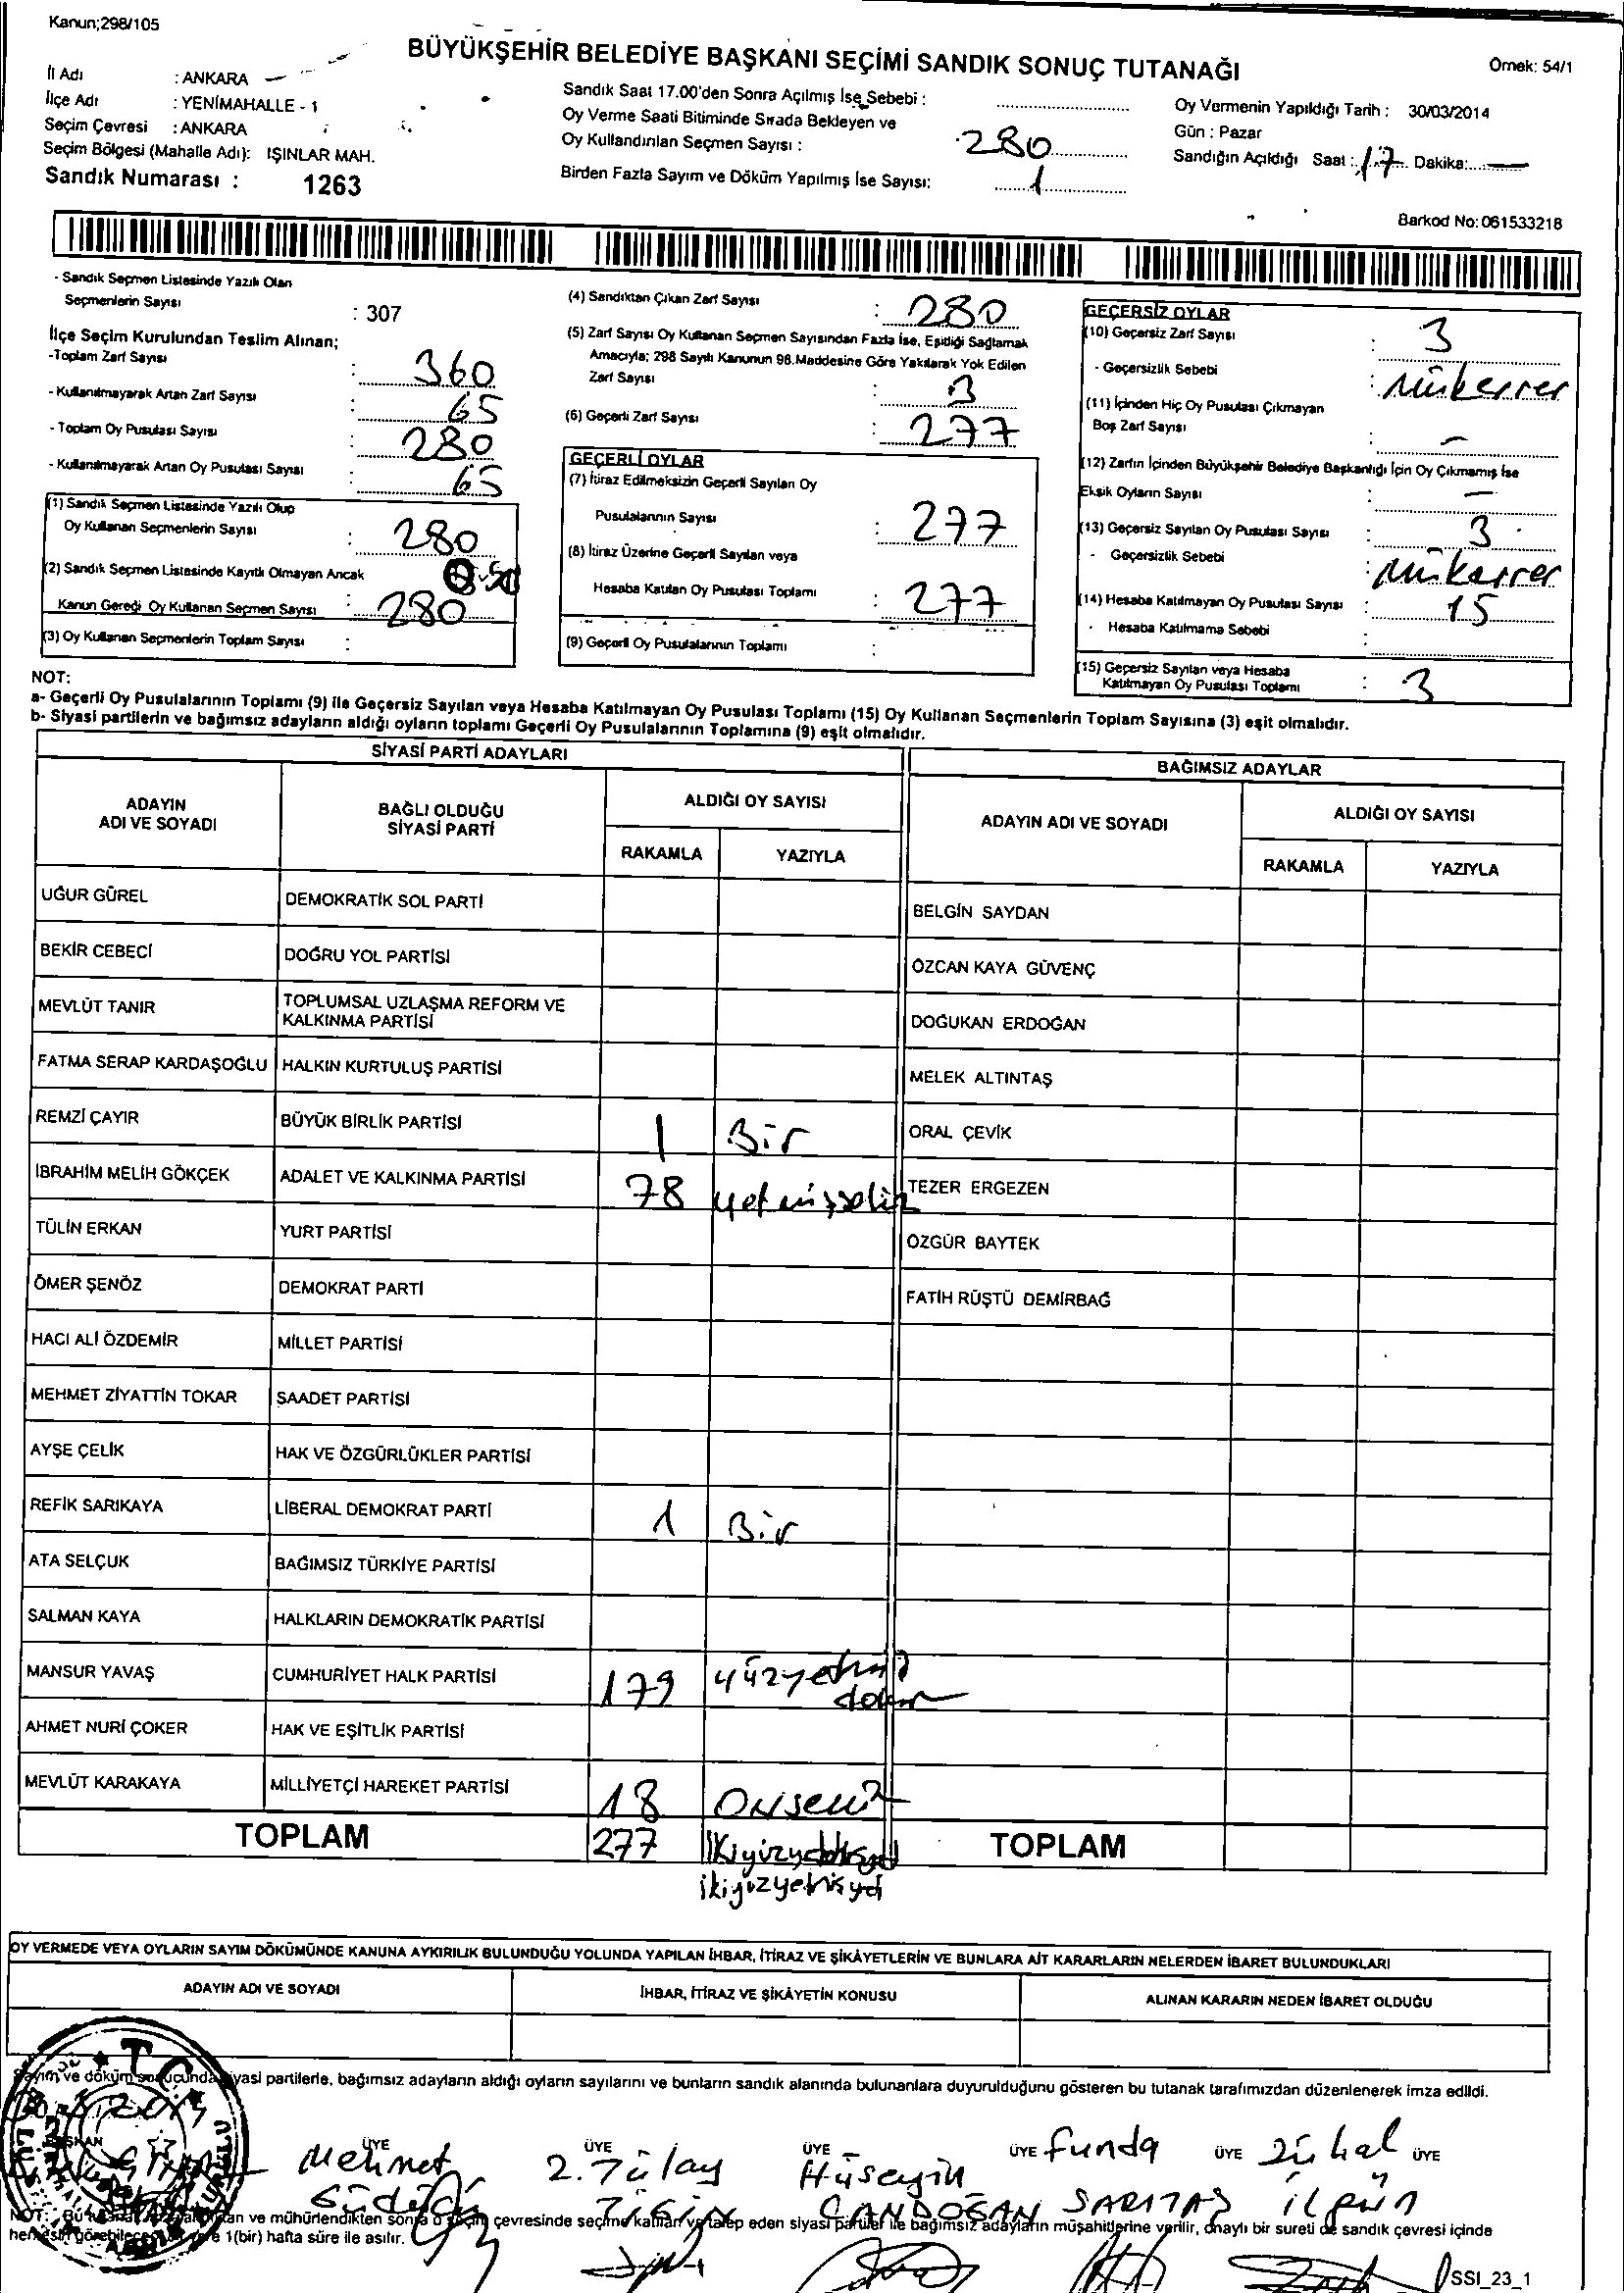 Kanun;298/105
BÜYÜKŞEHİR BELEDİYE BAŞKANI SEÇİMİ SANDIK SONUÇ TUTANAĞI
Örnek: 54/1
İl Adı : ANKARA
İlçe Adı : YENİMAHALLE - 1
Seçim Çevresi : ANKARA
Seçim Bölgesi (Mahalle Adı): IŞINLAR MAH.
Sandık Numarası : 1263
Sandık Saat 17.00'den Sonra Açılmış İse Sebebi :
Oy Verme Saati Bitiminde Sırada Bekleyen ve
Oy Kullandırılan Seçmen Sayısı : 280
Birden Fazla Sayım ve Döküm Yapılmış İse Sayısı: 1
Oy Vermenin Yapıldığı Tarih : 30/03/2014
Gün : Pazar
Sandığın Açıldığı Saat : 17 Dakika: —
Barkod No: 061533218
- Sandık Seçmen Listesinde Yazılı Olan
Seçmenlerin Sayısı : 307
İlçe Seçim Kurulundan Teslim Alınan;
-Toplam Zarf Sayısı : 360
- Kullanılmayarak Artan Zarf Sayısı : 65
- Toplam Oy Pusulası Sayısı : 280
- Kullanılmayarak Artan Oy Pusulası Sayısı : 65
(1) Sandık Seçmen Listesinde Yazılı Olup
Oy Kullanan Seçmenlerin Sayısı : 280
(2) Sandık Seçmen Listesinde Kayıtlı Olmayan Ancak
Kanun Gereği Oy Kullanan Seçmen Sayısı : 280
(3) Oy Kullanan Seçmenlerin Toplam Sayısı :
(4) Sandıktan Çıkan Zarf Sayısı : 280
(5) Zarf Sayısı Oy Kullanan Seçmen Sayısından Fazla İse, Eşitliği Sağlamak
Amacıyla; 298 Sayılı Kanunun 98.Maddesine Göre Yakılarak Yok Edilen
Zarf Sayısı : 3
(6) Geçerli Zarf Sayısı : 277
GEÇERLİ OYLAR
(7) İtiraz Edilmeksizin Geçerli Sayılan Oy
Pusulalarının Sayısı : 277
(8) İtiraz Üzerine Geçerli Sayılan veya
Hesaba Katılan Oy Pusulası Toplamı : 277
(9) Geçerli Oy Pusulalarının Toplamı :
GEÇERSİZ OYLAR
(10) Geçersiz Zarf Sayısı : 3
- Geçersizlik Sebebi : Mükerrer
(11) İçinden Hiç Oy Pusulası Çıkmayan
Boş Zarf Sayısı : -
(12) Zarfın İçinden Büyükşehir Belediye Başkanlığı İçin Oy Çıkmamış İse
Eksik Oyların Sayısı : -
(13) Geçersiz Sayılan Oy Pusulası Sayısı : 3
- Geçersizlik Sebebi : Mükerrer
(14) Hesaba Katılmayan Oy Pusulası Sayısı : 15
- Hesaba Katılmama Sebebi :
(15) Geçersiz Sayılan veya Hesaba
Katılmayan Oy Pusulası Toplamı : 3
NOT:
a- Geçerli Oy Pusulalarının Toplamı (9) ile Geçersiz Sayılan veya Hesaba Katılmayan Oy Pusulası Toplamı (15) Oy Kullanan Seçmenlerin Toplam Sayısına (3) eşit olmalıdır.
b- Siyasi partilerin ve bağımsız adayların aldığı oyların toplamı Geçerli Oy Pusulalarının Toplamına (9) eşit olmalıdır.
SİYASİ PARTİ ADAYLARI
ADAYIN ADI VE SOYADI
BAĞLI OLDUĞU SİYASİ PARTİ
ALDIĞI OY SAYISI
RAKAMLA YAZIYLA
UĞUR GÜREL DEMOKRATİK SOL PARTİ
BEKİR CEBECİ DOĞRU YOL PARTİSİ
MEVLÜT TANIR TOPLUMSAL UZLAŞMA REFORM VE KALKINMA PARTİSİ
FATMA SERAP KARDAŞOĞLU HALKIN KURTULUŞ PARTİSİ
REMZİ ÇAYIR BÜYÜK BİRLİK PARTİSİ 1 Bir
İBRAHİM MELİH GÖKÇEK ADALET VE KALKINMA PARTİSİ 78 yetmişseliz
TÜLİN ERKAN YURT PARTİSİ
ÖMER ŞENÖZ DEMOKRAT PARTİ
HACI ALİ ÖZDEMİR MİLLET PARTİSİ
MEHMET ZİYATTİN TOKAR SAADET PARTİSİ
AYŞE ÇELİK HAK VE ÖZGÜRLÜKLER PARTİSİ
REFİK SARIKAYA LİBERAL DEMOKRAT PARTİ 1 Bir
ATA SELÇUK BAĞIMSIZ TÜRKİYE PARTİSİ
SALMAN KAYA HALKLARIN DEMOKRATİK PARTİSİ
MANSUR YAVAŞ CUMHURİYET HALK PARTİSİ 179 yüzyetmiş dokuz
AHMET NURİ ÇOKER HAK VE EŞİTLİK PARTİSİ
MEVLÜT KARAKAYA MİLLİYETÇİ HAREKET PARTİSİ 18 Onsekiz
TOPLAM 277
ikiyüzyetmişyedi
BAĞIMSIZ ADAYLAR
ADAYIN ADI VE SOYADI
ALDIĞI OY SAYISI
RAKAMLA YAZIYLA
BELGİN SAYDAN
ÖZCAN KAYA GÜVENÇ
DOĞUKAN ERDOĞAN
MELEK ALTINTAŞ
ORAL ÇEVİK
TEZER ERGEZEN
ÖZGÜR BAYTEK
FATİH RÜŞTÜ DEMİRBAĞ
TOPLAM
OY VERMEDE VEYA OYLARIN SAYIM DÖKÜMÜNDE KANUNA AYKIRILIK BULUNDUĞU YOLUNDA YAPILAN İHBAR, İTİRAZ VE ŞİKÂYETLERİN VE BUNLARA AİT KARARLARIN NELERDEN İBARET BULUNDUKLARI
ADAYIN ADI VE SOYADI
İHBAR, İTİRAZ VE ŞİKÂYETİN KONUSU
ALINAN KARARIN NEDEN İBARET OLDUĞU
Sayım ve döküm sonucunda siyasi partilerle, bağımsız adayların aldığı oyların sayılarını ve bunların sandık alanında bulunanlara duyurulduğunu gösteren bu tutanak tarafımızdan düzenlenerek imza edildi.
T.C.
ÜYE ÜYE ÜYE ÜYE ÜYE ÜYE
Mehmet 2. Tülay Hüseyin Funda Zühal
CANDOĞAN SARITAŞ
NOT: Bu tutanak ve mühürlendikten sonra o seçim çevresinde seçime katılan ve talep eden siyasi partiler ile bağımsız adayların müşahitlerine verilir, onaylı bir sureti de sandık çevresi içinde
herkesin görebileceği yere 1(bir) hafta süre ile asılır.
SSI_23_1